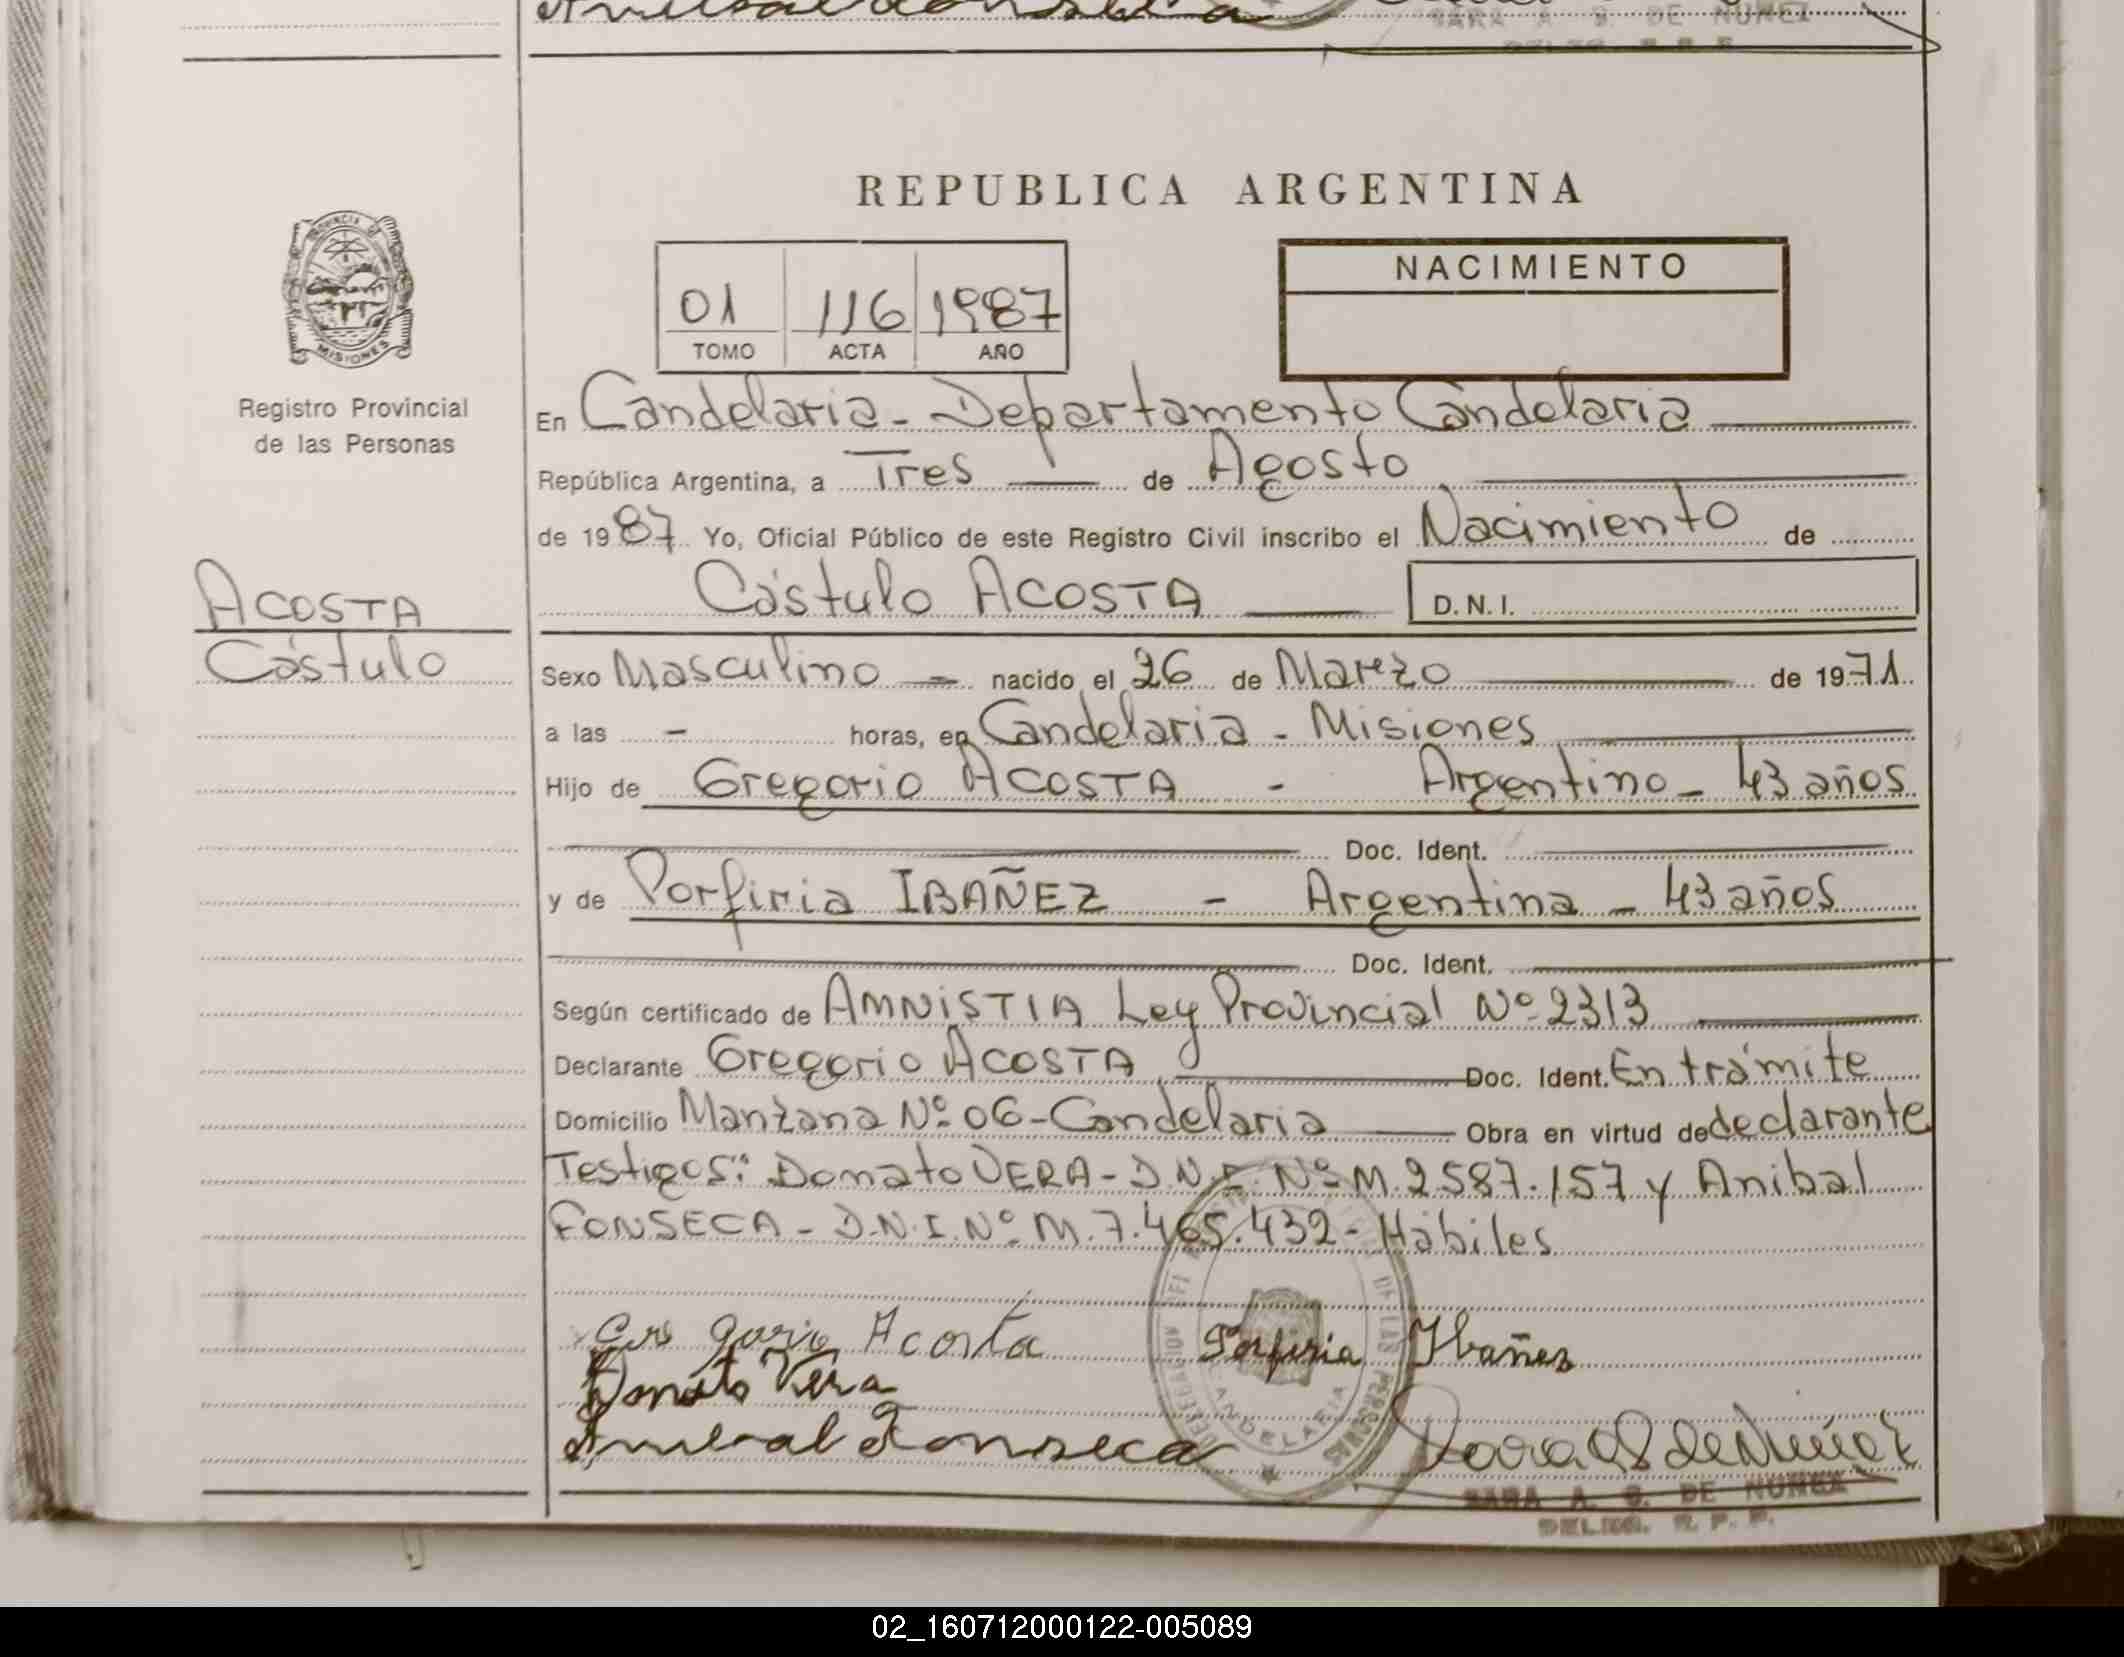 SARA A. S. DE NUÑEZ
DELEG. R. P. P.
REPUBLICA ARGENTINA
PROVINCIA DE
MISIONES
Registro Provincial
de las Personas
01 116 1987
TOMO ACTA AÑO
NACIMIENTO
En Candelaria - Departamento Candelaria
República Argentina, a Tres de Agosto
de 1987. Yo, Oficial Público de este Registro Civil inscribo el Nacimiento de
Cástulo ACOSTA D.N.I.
ACOSTA
Cástulo
Sexo Masculino nacido el 26 de Marzo de 1971.
a las - horas, en Candelaria - Misiones
Hijo de Gregorio ACOSTA - Argentino - 43 años
Doc. Ident.
y de Porfiria IBAÑEZ - Argentina - 43 años
Doc. Ident.
Según certificado de AMNISTIA Ley Provincial Nº 2313
Declarante Gregorio ACOSTA Doc. Ident. En trámite
Domicilio Manzana Nº 06 - Candelaria Obra en virtud de declarante
Testigos: Donato VERA - D.N.I. Nº M. 2587.157 y Anibal
FONSECA - D.N.I. Nº M. 7.465.432 - Hábiles
Gre gorio Acosta Porfiria Ibañez
Donato Vera
Anibal Fonseca Sara A S de Nuñez
DELEGACION DEL DE LAS PERSONAS
CANDELARIA
SARA A. S. DE NUÑEZ
DELEG. R. P. P.
02_160712000122-005089